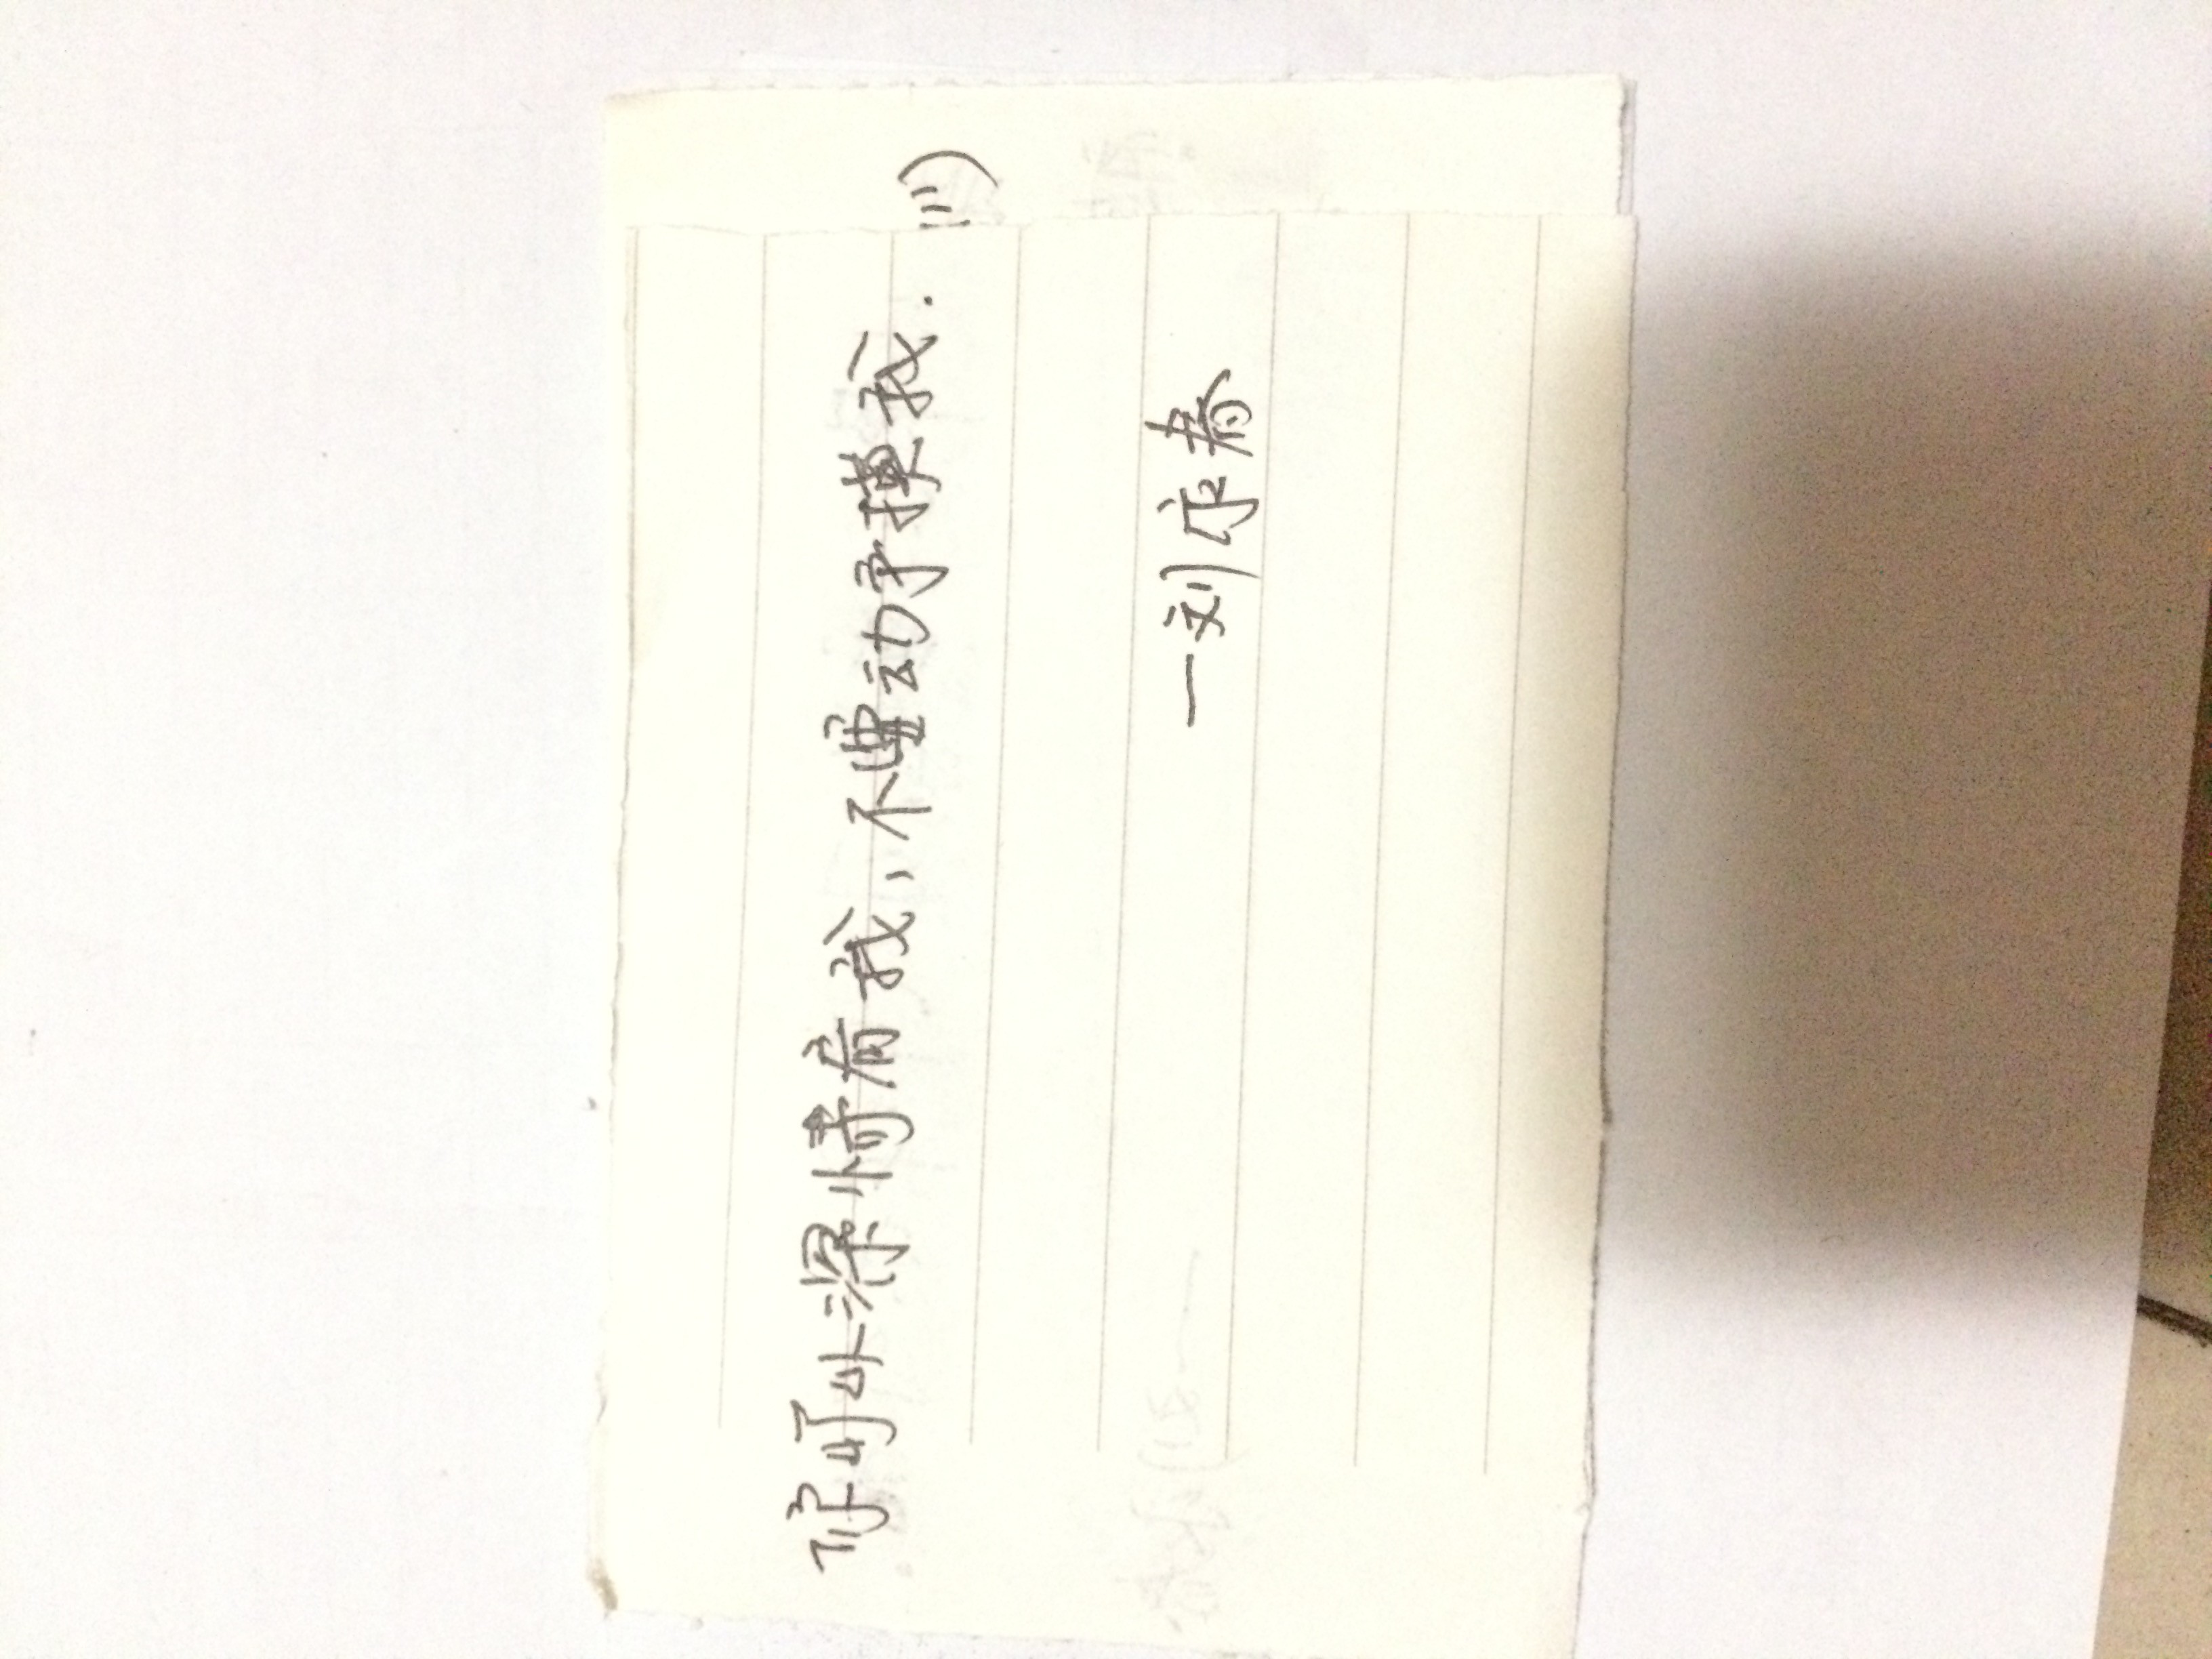 你可以深情看我,不要动手摸我.
—刘永春